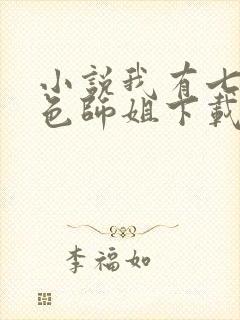 小說我有七
色師姐下載
李福如